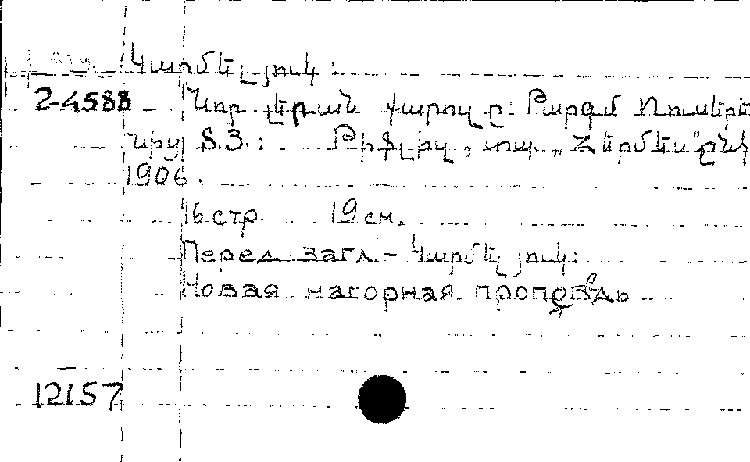 Կարմել յուկ:
2-4588 Նոր լերան քարոզը. Թարգմ Ռուսերե
նից Տ.Յ.: Թիֆլիզ, տպ. „Հերմես" ընկ
1906.
16 стр 19 см.
Перед загл - Կարմել յուկ:
Новая нагорная проповедь
12157